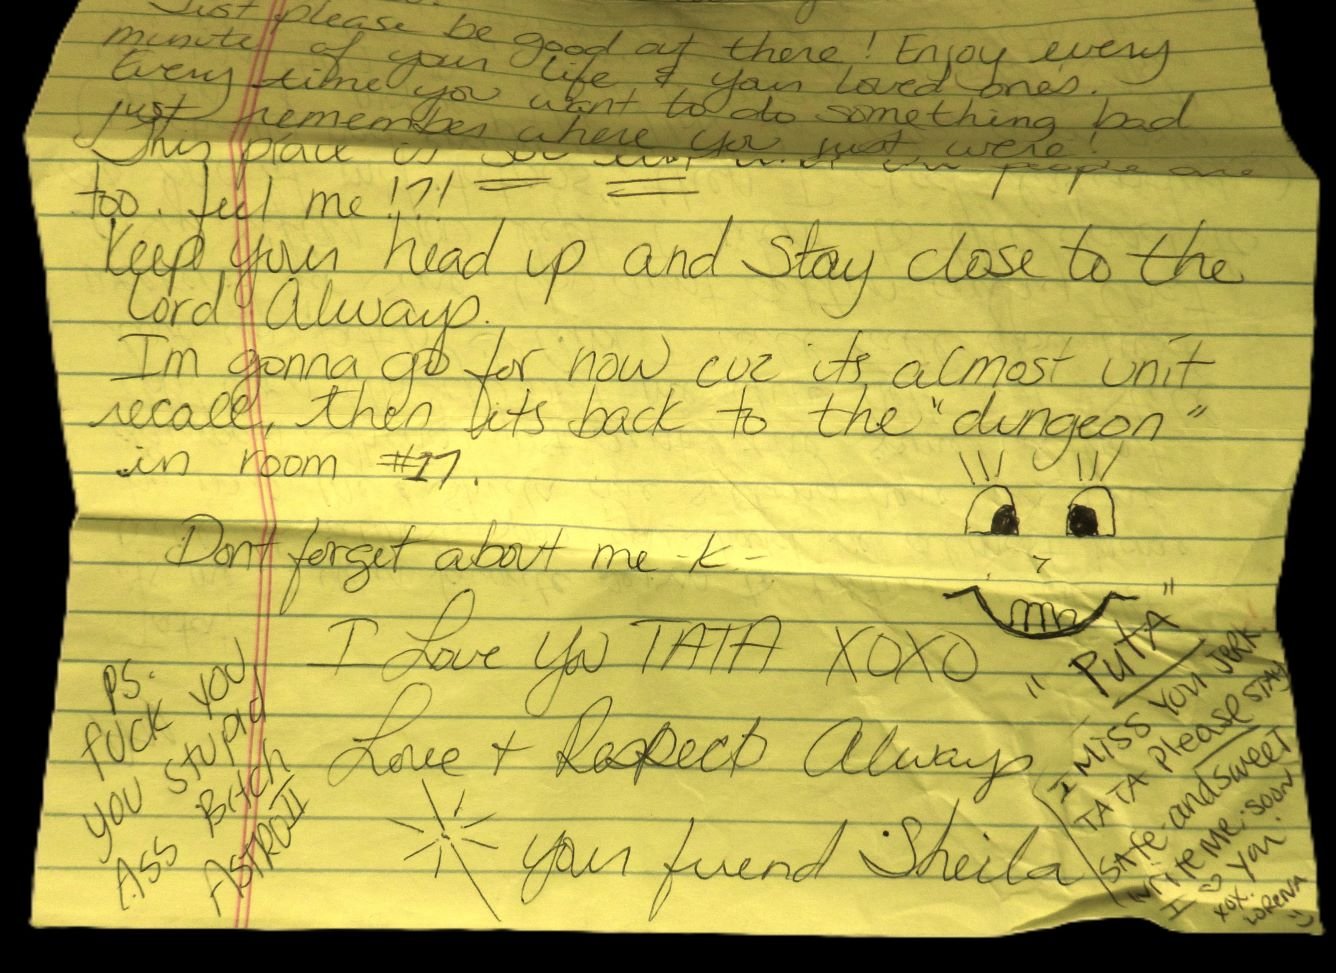 Just please be good out there! Enjoy every
minute of your life & your loved ones.
Every time you want to do something bad
just remember where you just were!
This place is people are
too. feel me!?!
Keep your head up and Stay close to the
Lord Always.
Im gonna go for now cuz its almost unit
recall, then its back to the "dungeon"
in room #17.
Dont forget about me -k-
I Love You TATA XOXO
Love + Respect Always
your friend Sheila
PS.
fuck you
you stupid
Ass Bitch
ASTRO II
"PUTA"
I MISS YOU JERK
TATA please STAY
SAfe and sweet
write Me soon
I ♡ you.
xox.
LORENA